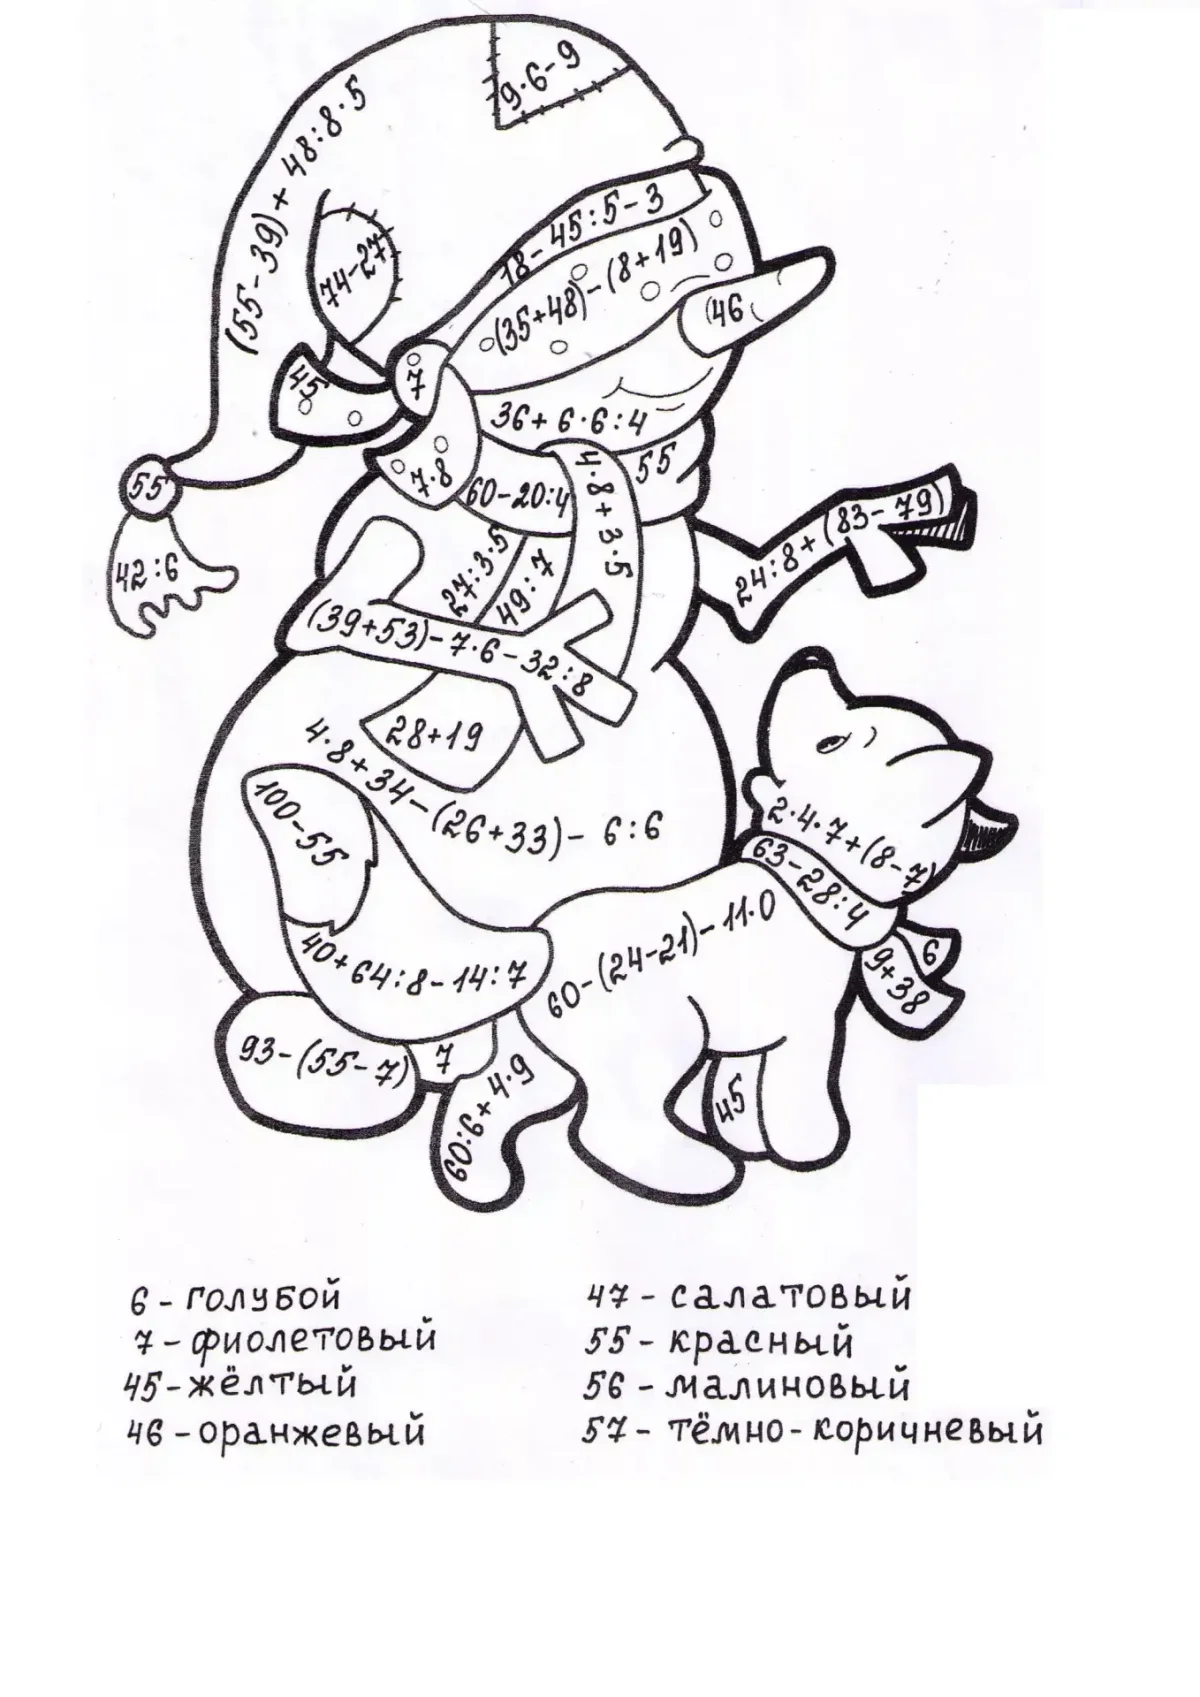 9·6-9
(55-39)+48:8·5
74-27
18-45:5-3
(35+48)-(8+19)
(46
45
7
36+6·6:4
55
7·8
60-20:4
4·8+3·5
55
42:6
24:8+(83-79)
27:3·5
49:7
(39+53)-7·6-32:8
28+19
4·8+34-(26+33)-6:6
100-55
2·4·7+(8-7)
63-28:4
6
9+38
60-(24-21)-11·0
40+64:8-14:7
93-(55-7)
7
60:6+4·9
45
6 - голубой
7 - фиолетовый
45 - жёлтый
46 - оранжевый
47 - салатовый
55 - красный
56 - малиновый
57 - тёмно-коричневый